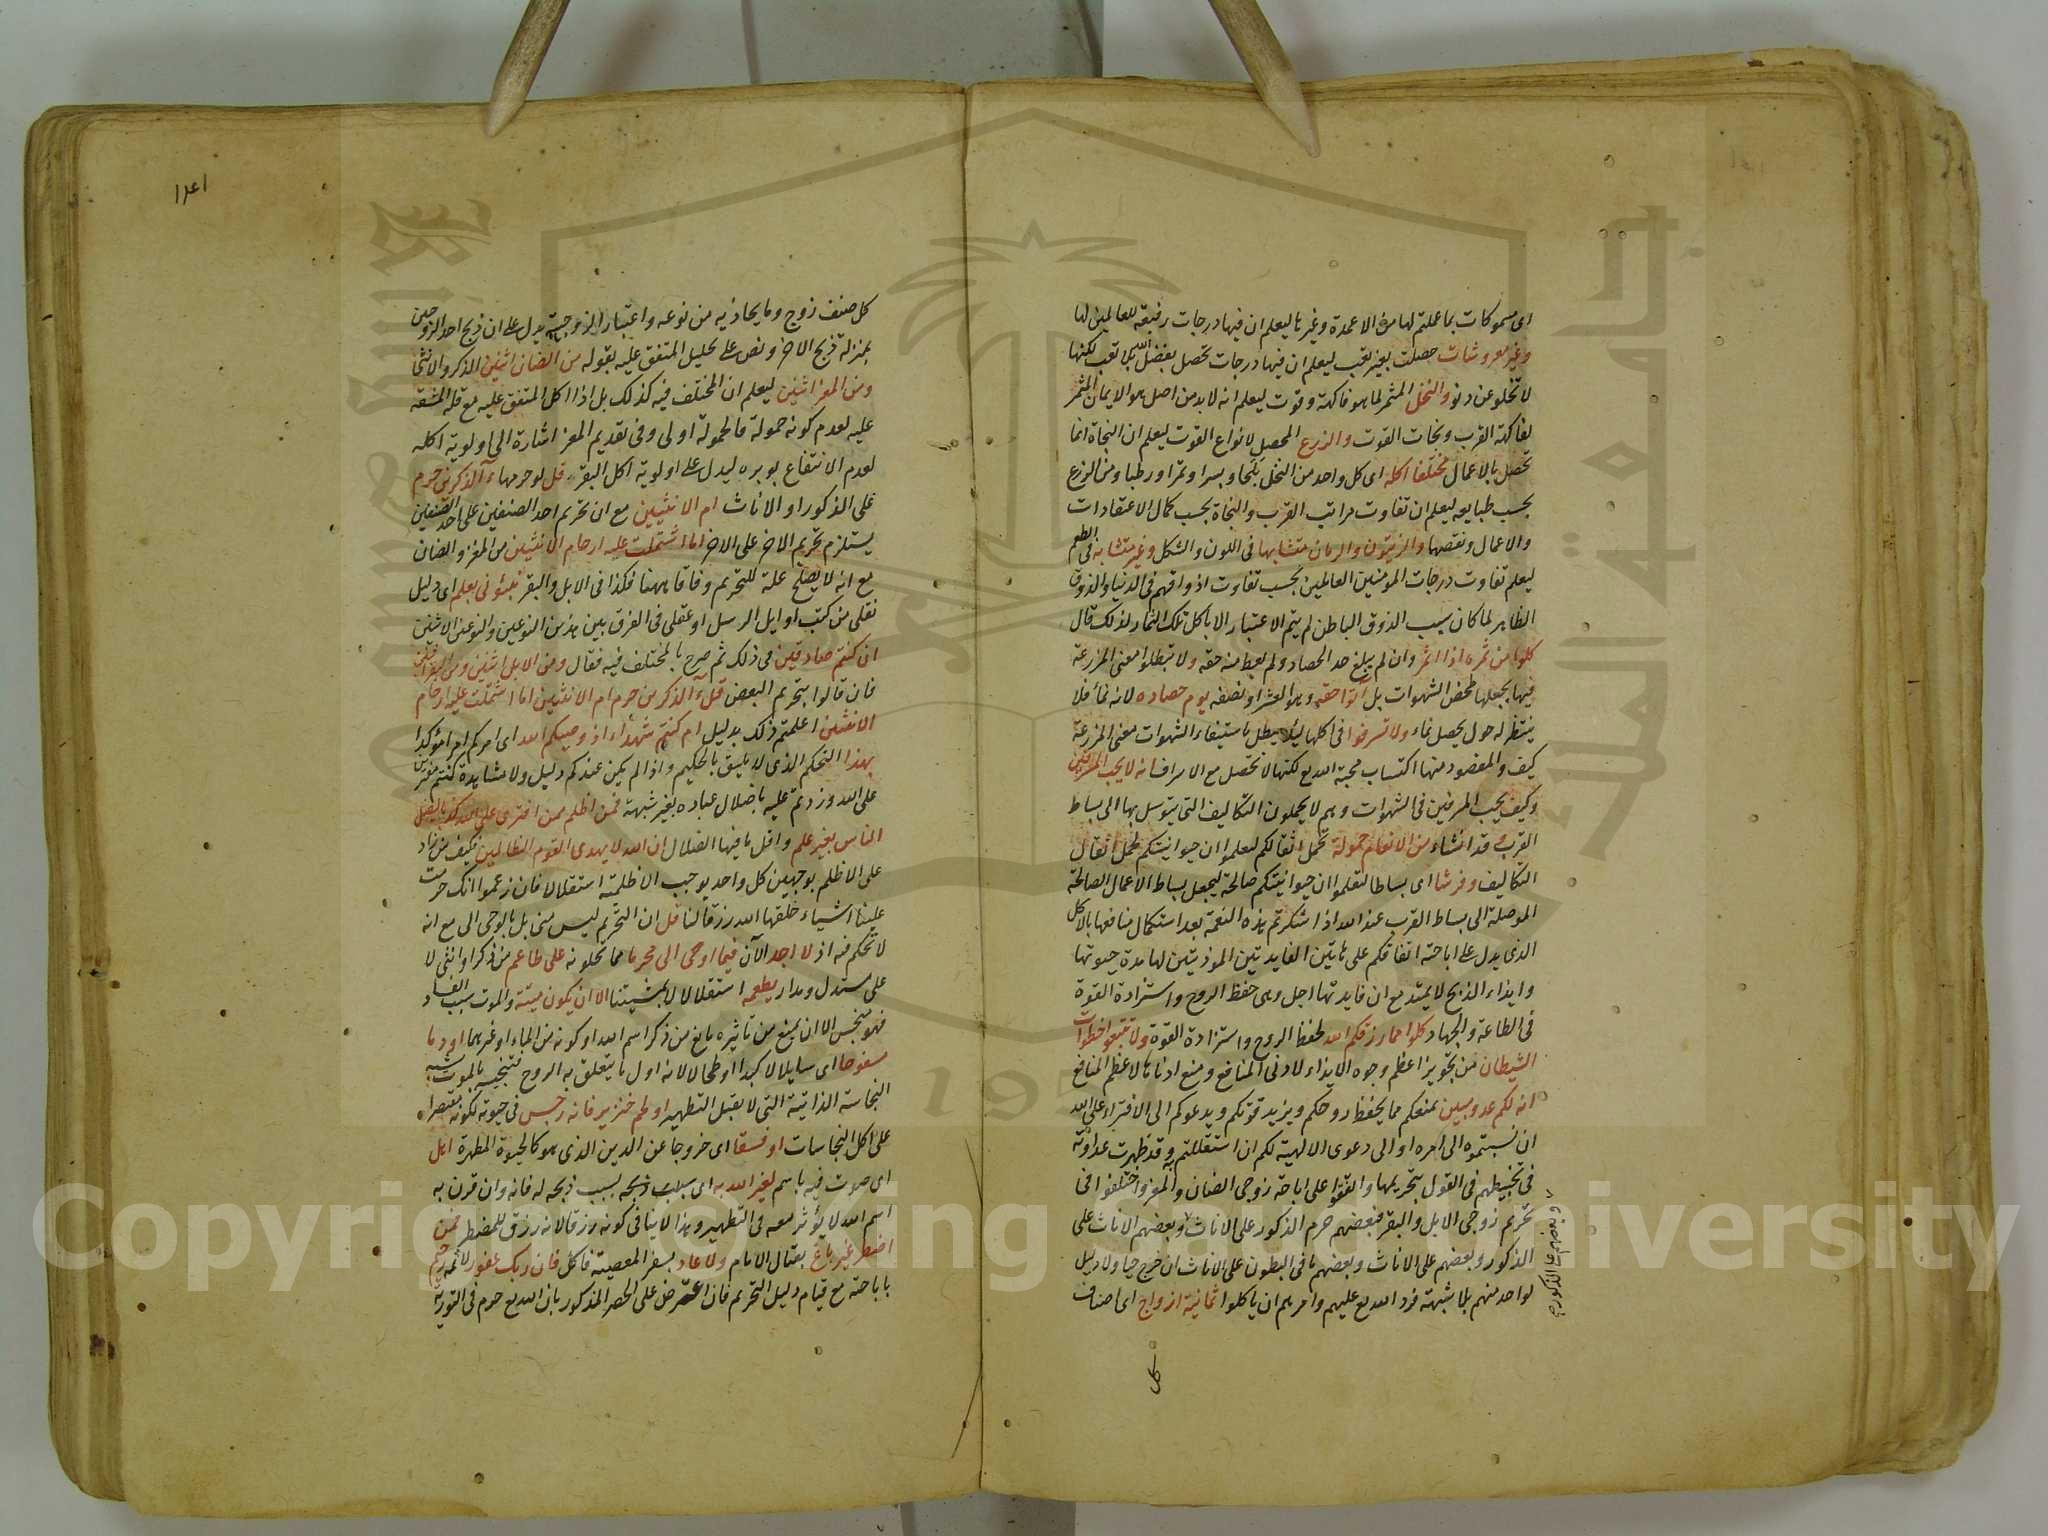 اى مسموكات بما عملتم لها من الاعمدة وغيرها ليعلم ان فيها درجات رفيعة للعاملين لها
وغير معروشات حصلت بغير تعب ليعلم ان فيها درجات تحصل بفضل الله بلا تعب لكنها
لا تخلو عن دنو والنخل المثمر لما هو فاكهة وقوت ليعلم انه لا بد من اصل هو الايمان المثمر
لفاكهة القرب ونجات القوت والزرع المحصل لانواع القوت ليعلم ان النجاة انما
تحصل بالاعمال مختلفا اكله اى كل واحد من النخل بلحا وبسرا وتمرا ورطبا ومن الزرع
بحسب طبايعه ليعلم ان تفاوت مراتب القرب والنجاة بحسب كمال الاعتقادات
والاعمال ونقصها والزيتون والرمان متشابها فى اللون والشكل وغير متشابه فى الطعم
ليعلم تفاوت درجات المومنين العاملين بحسب تفاوت اذواقهم فى الدنيا والذوق
الظاهر لما كان سبب الذوق الباطن لم يتم الاعتبار الا باكل تلك الثمار لذلك قال
كلوا من ثمره اذا اثمر وان لم يبلغ حد الحصاد ولم يعط منه حقه ولا تبطلوا معنى المزرعة
فيها بجعلها لمحض الشهوات بل آتوا حقه وهو العشر او نصفه يوم حصاده لانه نماء فلا
ينتظر له حول يحصل نماء ولا تسرفوا فى اكلها ليلا يبطل باستيفاء الشهوات معنى المزرعة
كيف والمقصود منها اكتساب محبة الله تع لكنها لا تحصل مع الاسراف انه لا يحب المسرفين
وكيف يحب المسرفين فى الشهوات وهم لا يحملون التكاليف التى يتوسل بها الى بساط
القرب وقد انشاء من الانعام حمولة تحمل اثقالكم ليعلموا ان حيوانيتكم لحمل اثقال
التكاليف وفرشا اى بساطا لتعلموا ان حيوانيتكم صالحة ليجعل بساط الاعمال الصالحة
الموصلة الى بساط القرب عند الله اذا شكرتم هذه النعمة بعد استكمال منافعها بالاكل
الذى يدل على اباحته اتفاقكم على هاتين الفايدتين الموذيتين لها مدة حيوتها
وايذاء الذبح لا يمتد مع ان فايدتها اجل وهى حفظ الروح واستزادة القوة
فى الطاعة والجهاد كلوا مما رزقكم الله لحفظ الروح واستزادة القوة ولا تتبعوا خطوات
الشيطان من تجويز اعظم وجوه الايذاء لادنى المنافع ومنع ادناها لاعظم المنافع
انه لكم عدو مبين يمنعكم مما يحفظ روحكم ويزيد قوتكم ويدعوكم الى الافتراء على الله
ان نسبتموه الى امره او الى دعوى الالهية لكم ان استقللتم به وقد ظهرت عداوته
فى تخبيطهم فى القول بتحريمها واتفقوا على اباحة زوجى الضان والمعز واختلفوا فى
تحريم زوجى الابل والبقر فبعضهم حرم الذكور على الاناث وبعضهم الاناث على
الذكور وبعضهم على الاناث وبعضهم ما فى البطون على الاناث ان خرج حيا ولا دليل
لواحد منهم بلا شبهة فرد الله تع عليهم وامرهم ان ياكلوا ثمانية ازواج اى اصناف
وبعضهم على الذكور صح
كل
كل صنف زوج وما يحاذيه من نوعه واعتبار الزوجية يدل على ان ذبح احد الزوجين
بمنزلة ذبح الاخر ونص على تحليل المتفق عليه بقوله من الضان اثنين الذكر والانثى
ومن المعز اثنين ليعلم ان المختلف فيه كذلك بل اذا اكل المتفق عليه مع قلة المشقة
عليه لعدم كونه حمولة فالحمولة اولى وفى تقديم المعز اشارة الى اولوية اكله
لعدم الانتفاع بوبره ليدل على اولوية اكل البقر قل لو حرمها ءآلذكرين حرم
على الذكور او الاناث ام الانثيين مع ان تحريم احد الصنفين على احد الصنفين
يستلزم تحريم الاخر على الاخر اما اشتملت عليه ارحام الانثيين من المعز والضان
مع انه لا يصلح علة للتحريم وفاقا ههنا فكذا فى الابل والبقر نبئونى بعلم اى دليل
نقلى من كتب اوايل الرسل او عقلى فى الفرق بين هذين النوعين والنوعين الاثنين
ان كنتم صادقين فى ذلك ثم صرح بالمختلف فيه فقال ومن الابل اثنين ومن البقر اثنين
فان قالوا بتحريم البعض قل ءآلذكرين حرم ام الانثيين اما اشتملت عليه ارحام
الانثيين اعلمتم ذلك بدليل ام كنتم شهداء اذ وصيكم الله اى امركم امرا مؤكدا
بهذا التحكم الذى لا يليق بالحكيم واذا لم يكن عندكم دليل ولا مشاهدة كنتم مفترين
على الله وزدتم عليه باضلال عباده بغير شبهة فمن اظلم ممن افترى على الله كذبا ليضل
الناس بغير علم واقل ما فيها الضلال ان الله لا يهدى القوم الظالمين فكيف من زاد
على الاظلم بوجهين كل واحد يوجب الاظلمية استقلالا فان زعموا انك حرمت
علينا اشياء خلقها الله رزقا لنا قل ان التحريم ليس منى بل بالوحى الى مع انه
لا تحكم فيه اذ لا اجد الآن فيما اوحى الى محرما مما تحلونه على طاعم من ذكر او انثى لا
على مستدل ومدار يطعمه استقلالا لا بمشيتنا الا ان يكون ميتة والموت سبب الفساد
فهو منجس الا ان يمنع من تاثيره مانع من ذكر اسم الله او كونه من الماء او غيرهما او دما
مسفوحا اى سايلا لا كبدا او طحالا لانه اول ما يتعلق به الروح فتنجيسه بالموت يشبه
النجاسة الذاتية التى لا تقبل التطهير او لحم خنزير فانه رجس فى حيوته لكونه مقتصرا
على اكل النجاسات او فسقا اى خروجا عن الدين الذى هو كالحيوة المطهرة اهل
اى صوت فيه باسم لغير الله به اى بسبب ذبحه له فانه وان قرن به
اسم الله لا يؤثر معه فى التطهير وهذا لا ينافى كونه رزقا لانه رزق للمضطر فمن
اضطر غير باغ بقتال الامام ولا عاد بسفر المعصية فاكل فان ربك غفور لاثمه رحيم
باباحته مع قيام دليل التحريم فان اعترض على الحصر المذكور بان الله تع حرم فى التورية
Copyright © King Saud University
جامعة الملك سعود